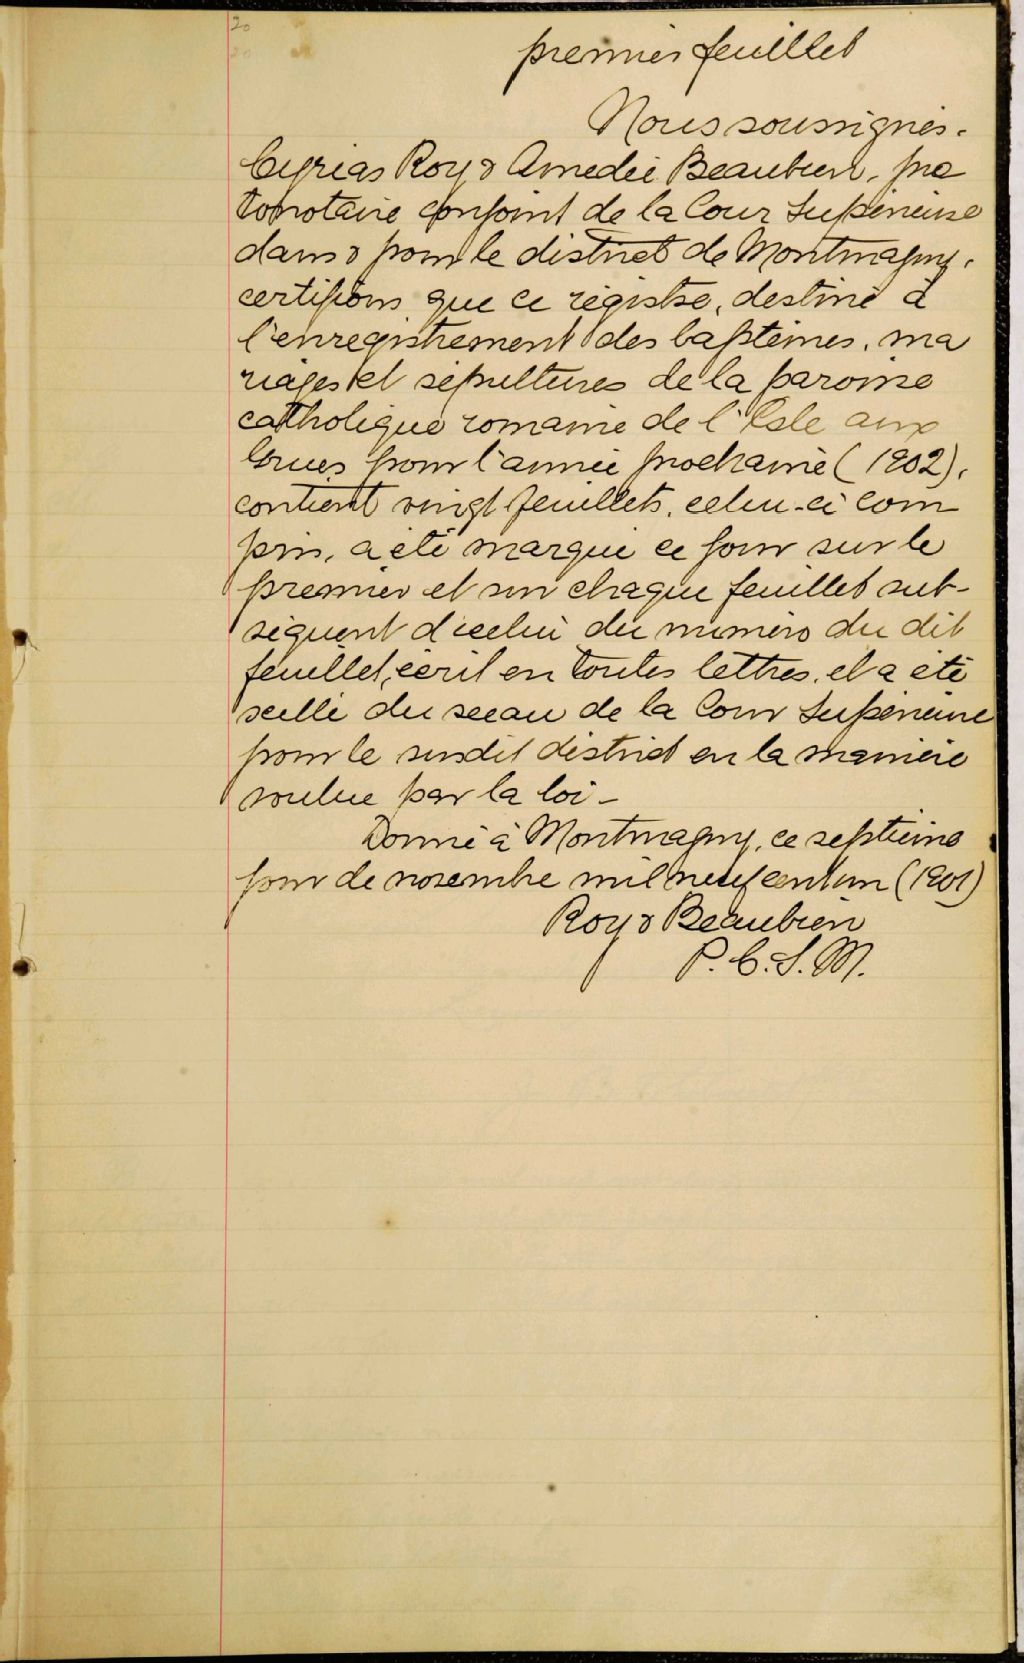 20
premier feuillet
Nous soussignés,
Cyrias Roy & Amedée Beaubien, pro
tonotaire conjoint de la Cour Supérieure
dans & pour le district de Montmagny,
certifions que ce régistre, destiné à
l'enregistrement des baptêmes, ma
riages et sépultures de la paroisse
catholique romaine de l'Isle aux
Grues pour l'année prochaine (1902),
contient vingt feuillets, celui-ci com
pris, a été marqué ce jour sur le
premier et sur chaque feuillet sub-
séquent d'icelui du numéro du dit
feuillet, écrit en toutes lettres, et a été
scellé du sceau de la Cour Supérieure
pour le susdit district en la manière
voulue par la loi -
Donné à Montmagny, ce septième
jour de novembre mil neuf cent un (1901)
Roy & Beaubien
P. C. S. M.